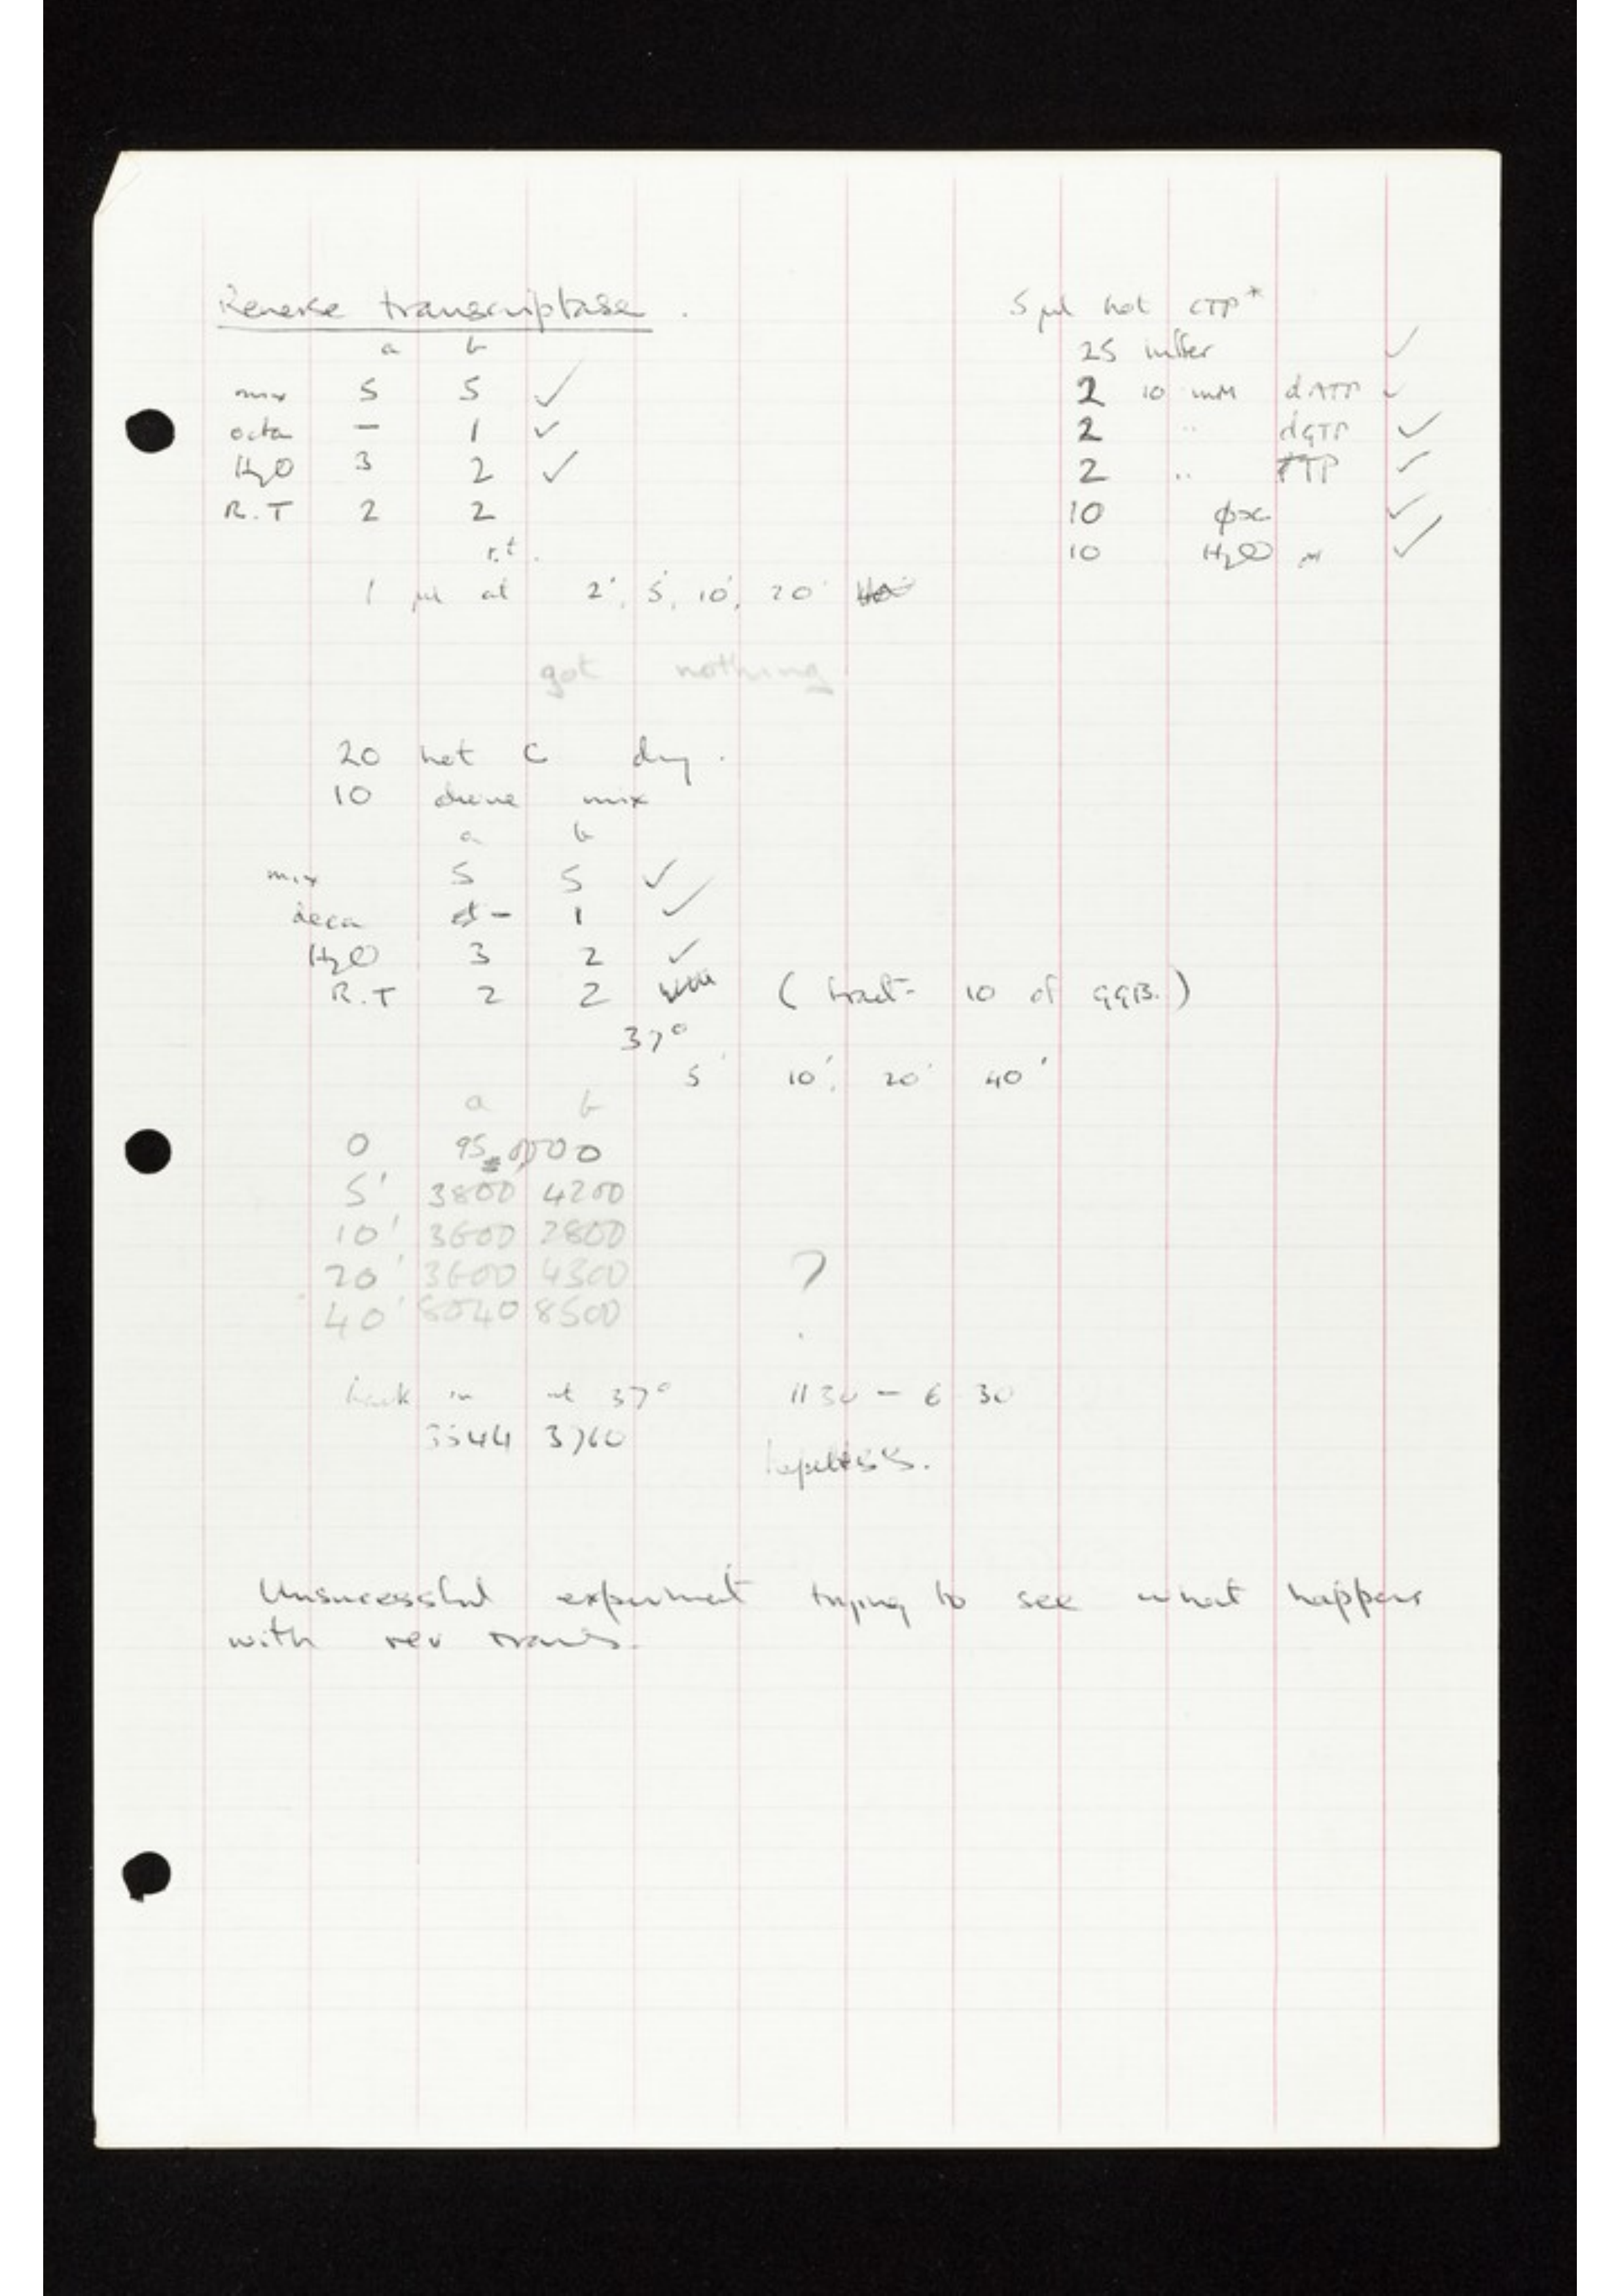 Reverse transcriptase.
a b
mix 5 5 ✓
octa — 1 ✓
H2O 3 2 ✓
R.T 2 2
r.t.
1 µl at 2', 5', 10', 20'
5 µl hot CTP*
25 buffer ✓
2 10 mM dATP ✓
2 " dGTP ✓
2 " TTP ✓
10 φx ✓
10 H2O ✓
got nothing
20 hot C dry.
10 above mix
a b
mix 5 5 ✓
deca - 1 ✓
H2O 3 2 ✓
R.T 2 2 (fract- 10 of GGB.)
37°
5' 10', 20' 40'
a b
0 95,000
5' 3800 4200
10' 3600 2800
20' 3600 4300
40' 8040 8500
?
back in at 37° 1130 - 6 30
3544 3760
hopeless.
Unsucessful experimet trying to see what happens
with rev trans.